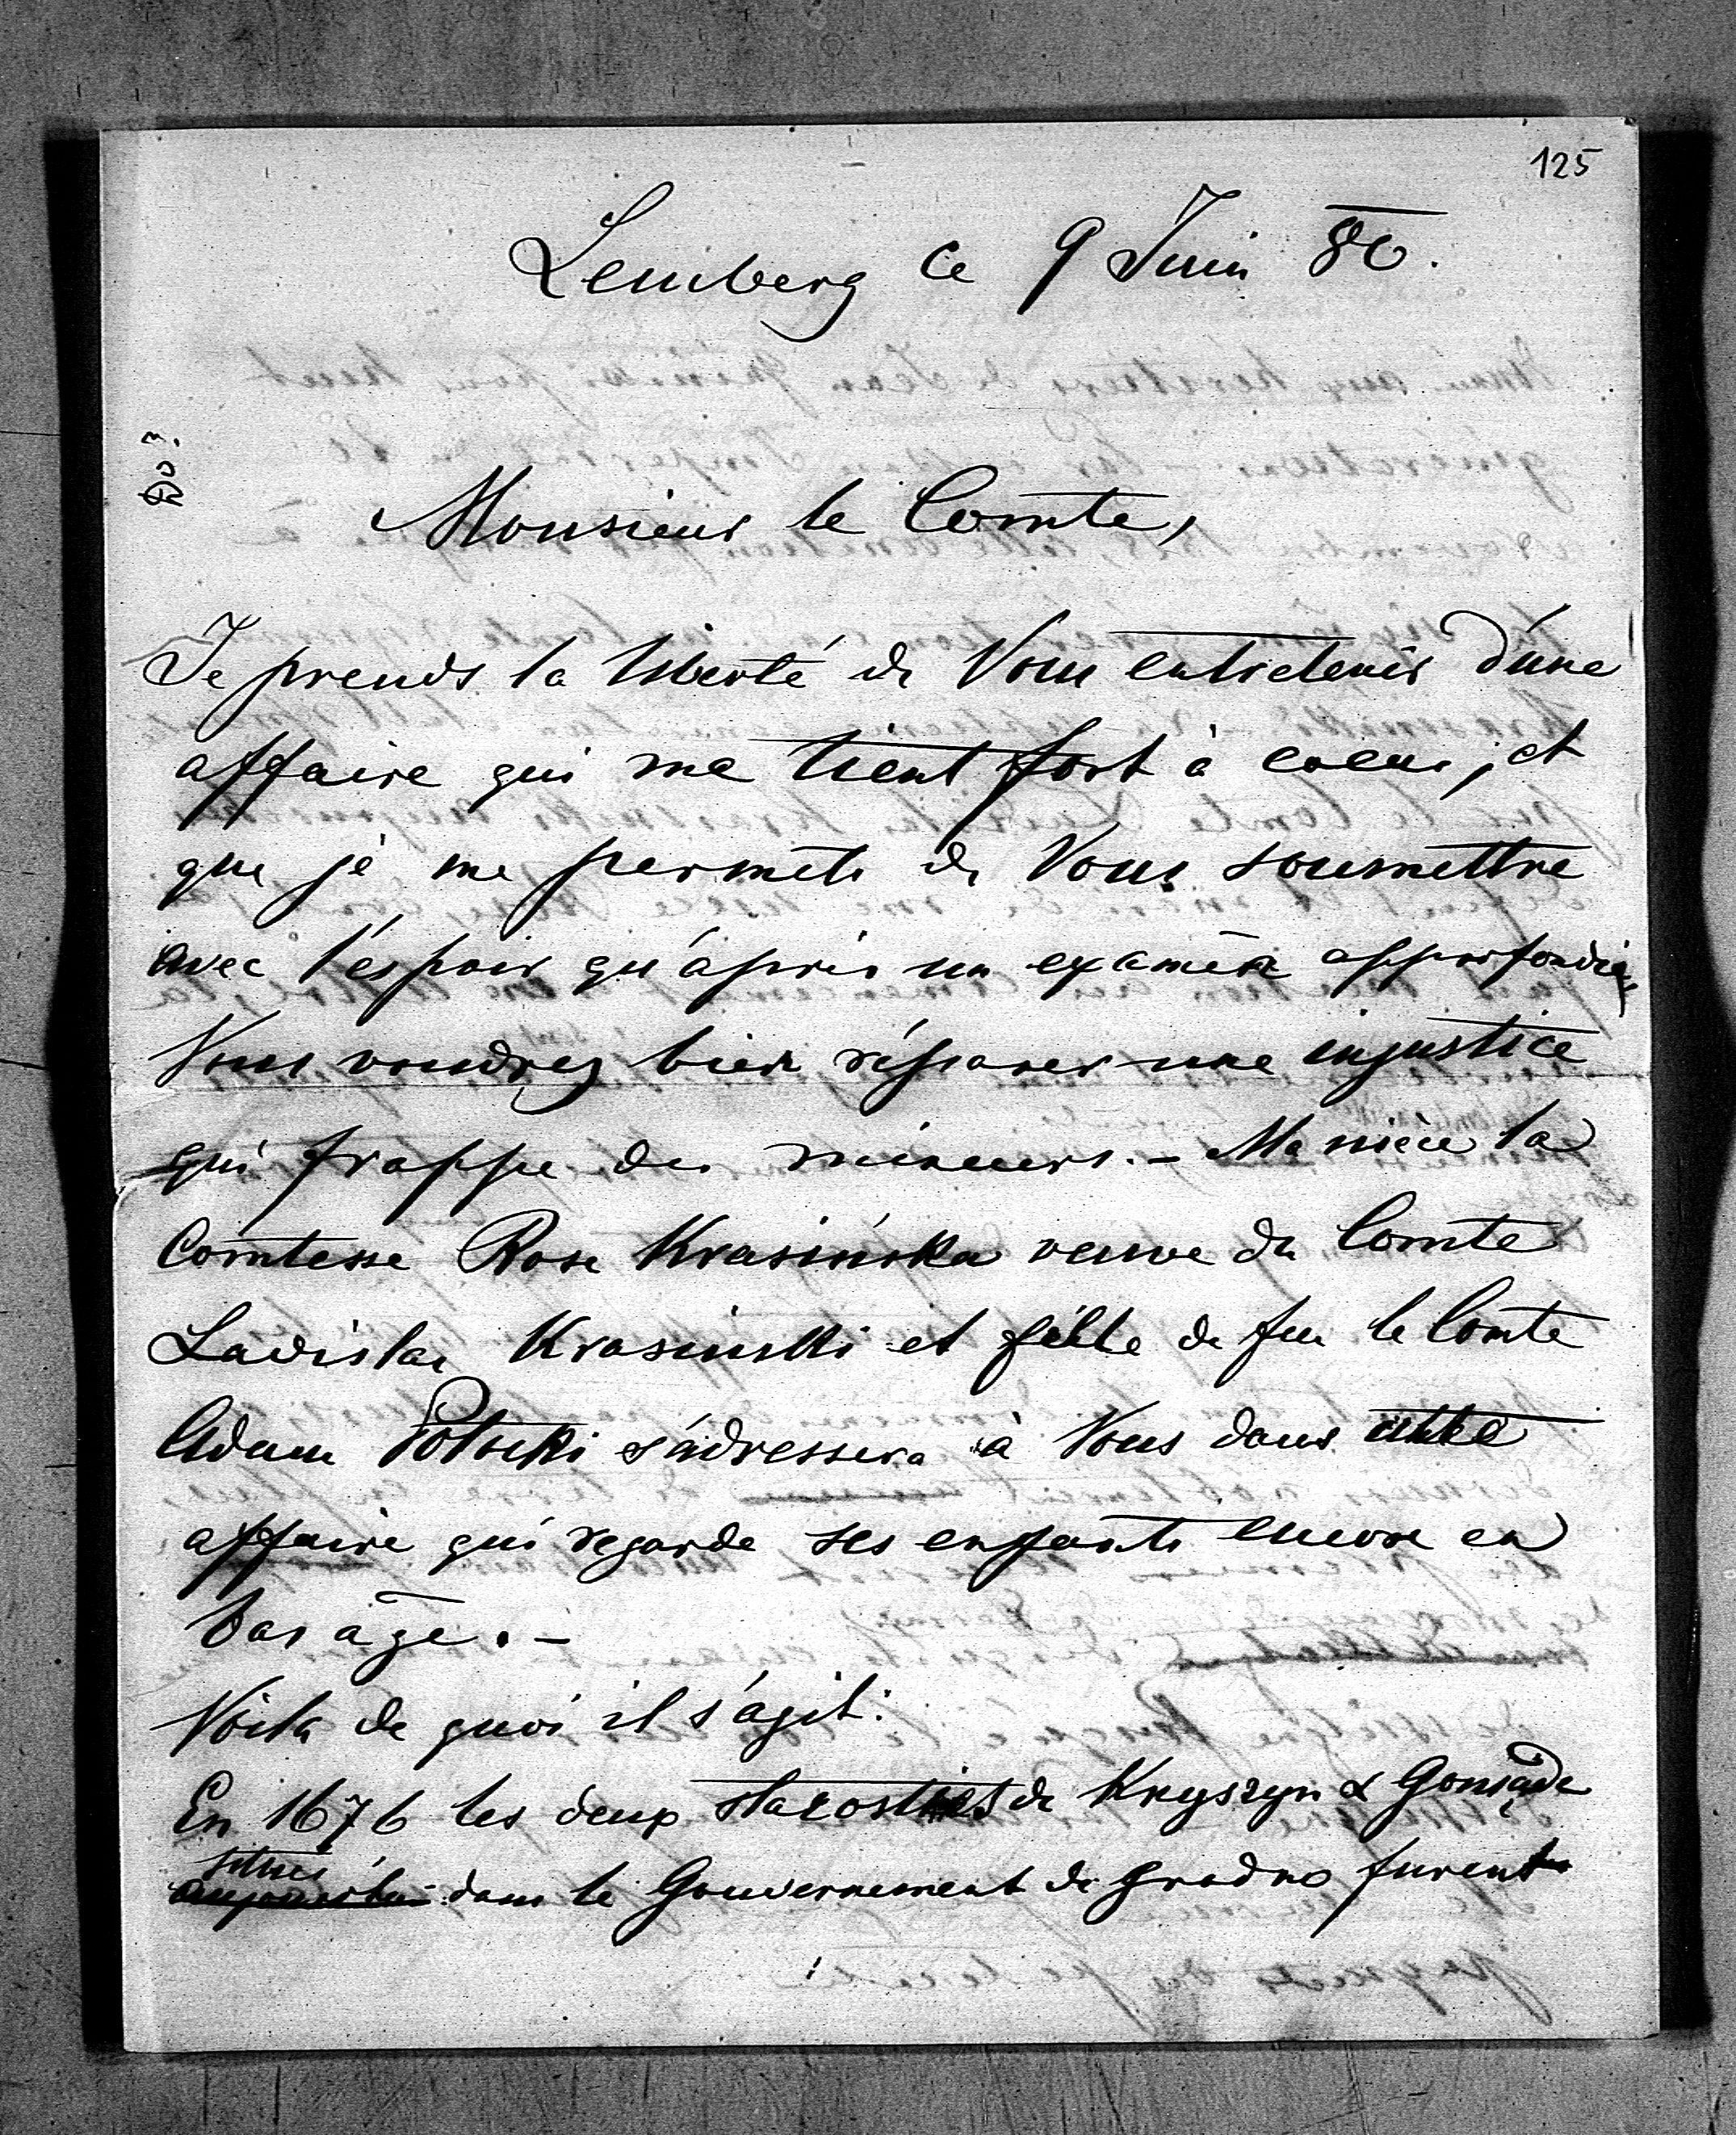 125
Lemberg ce 9 Juin 80.
Monsieur le Comte,
Je prends la liberté de Vous entretenir d'une
affaire qui me tient fort à coeur, et
que je me permets de Vous soumettre
avec l'espoir qu'après un examen approfondi
Vous voudrez bien réparer une injustice
qui frappe des mineurs. – Ma nièce la
Comtesse Rose Krasińska veuve du Comte
Ladislas Krasinski et fille de feu le Comte
Adam Potocki s'adressera à Vous dans cette
affaire qui regarde ses enfants encore en
bas âge. –
Voila de quoi il s'agit:
En 1676 les deux starosties de Knyszyn & Goniądz
situés
aujourd'hui dans le Gouvernement de Grodno furent